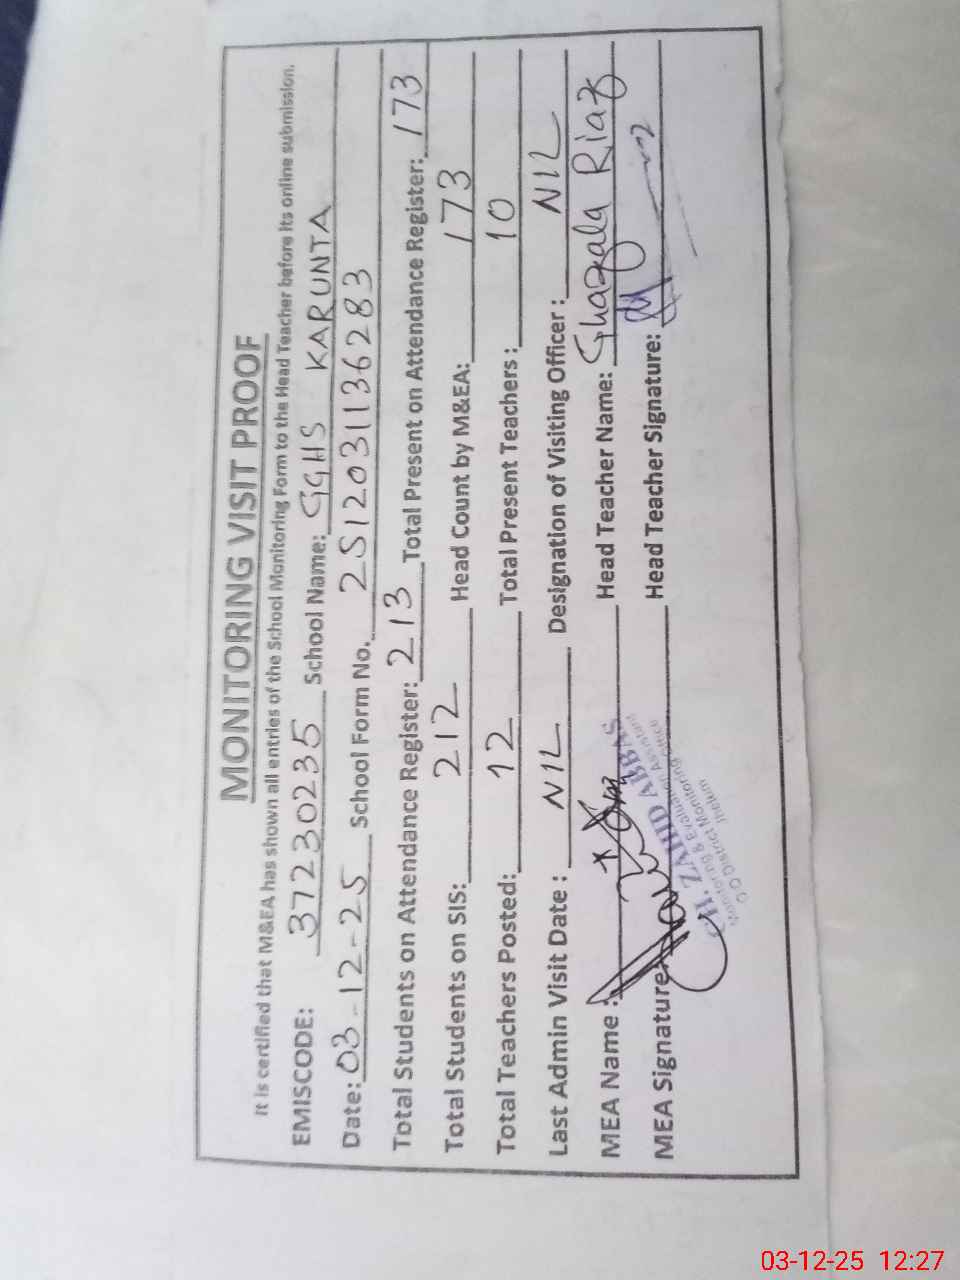 MONITORING VISIT PROOF
It is certified that M&EA has shown all entries of the School Monitoring Form to the Head Teacher before its online submission.
EMISCODE: 37230235 School Name: GGHS KARUNTA
Date: 03-12-25 School Form No. 2512031136283
Total Students on Attendance Register: 213 Total Present on Attendance Register: 173
Total Students on SIS: 212 Head Count by M&EA: 173
Total Teachers Posted: 12 Total Present Teachers: 10
Last Admin Visit Date: NIL Designation of Visiting Officer: NIL
MEA Name: Head Teacher Name: Ghazala Riaz
MEA Signature: Head Teacher Signature:
CH. ZAHID ABBAS
Monitoring & Evaluation Assistant
O/O District Monitoring Office
Jhelum
03-12-25 12:27